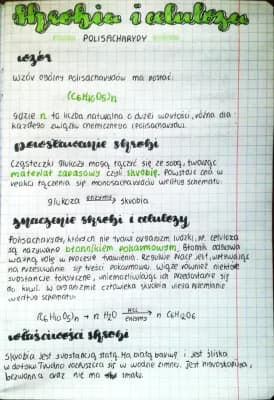 Skrobia i celuloza
POLISACHARYDY
wzór
Wzór ogólny polisacharydów ma postać:
(C6H10O5)n
gdzie n to liczba naturalna o dużej wartości, różna dla
każdego związku chemicznego (polisacharydu).
powstawanie skrobi
Cząsteczki glukozy mogą łączyć się ze sobą, tworząc
materiał zapasowy czyli skrobię. Powstaje ona w
reakcji łączenia się monosacharydów według schematu:
glukoza enzymy skrobia
znaczenie skrobi i celulozy
Polisacharydy, których nie trawi organizm ludzki, np. celuloza
są nazywane błonnikiem pokarmowym. Błonnik odgrywa
ważną rolę w procesie trawienia. Reguluje pracę jelit, wpływając
na przesuwanie się treści pokarmowej. Wiąże również niektóre
substancje toksyczne, uniemożliwiając ich przedostanie się
do krwi. W organizmie człowieka skrobia ulega przemianie
według schematu:
(C6H10O5)n + n H2O HCl enzymy n C6H12O6
właściwości skrobi
Skrobia jest substancją stałą. Ma białą barwę i jest śliska
w dotyku. Trudno rozpuszcza się w wodzie zimnej. Jest
bezwonna oraz nie ma smaku.